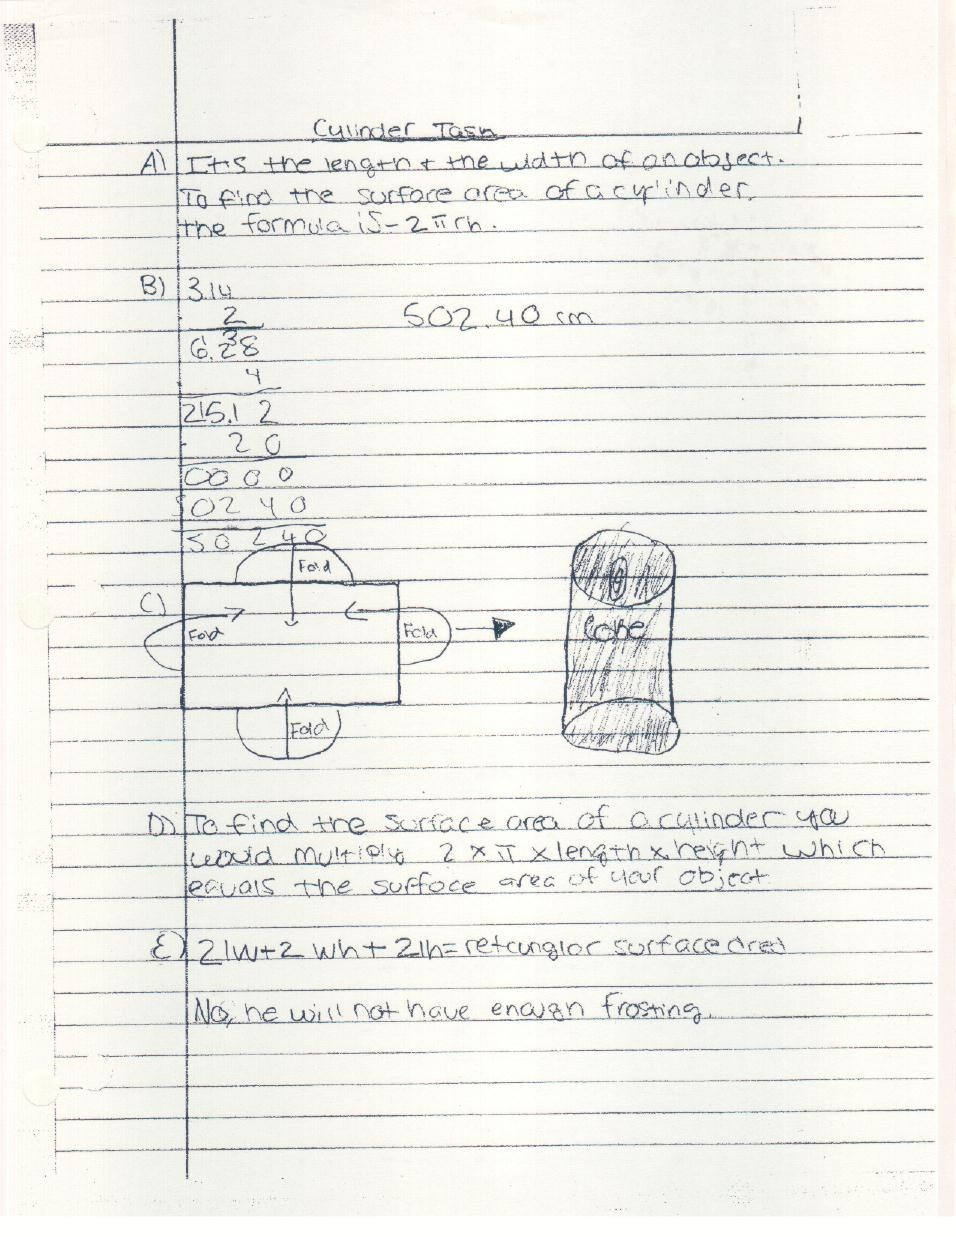 Cylinder Task
A) It's the length + the width of an object.
To find the surface area of a cyrlinder,
the formula is - 2πrh.
B) 3.14
2
502.40 cm
3
6.28
4
215.12
20
0000
50240
50240
Fold
C)
Fold
Fold
Cake
Fold
D) To find the surface area of a cylinder you
would multiply 2 × π × length × height which
equals the surface area of your object.
E) 2lw+2 wh + 2lh= retcunglar surface area
No, he will not have enough frosting.